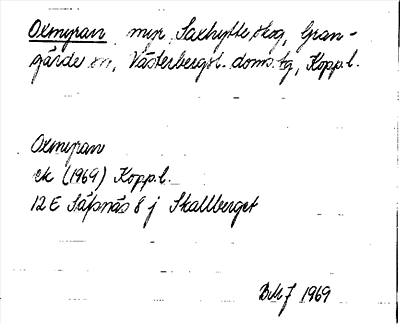 Oxmyran myr, Saxhytte skog, Gran-
gärde sn, Västerbergsl. doms. tg, Kopp.l.
Oxmyran
ek (1969) Kopp.l.
12 E Säfsnäs 8 j Skallberget
1969